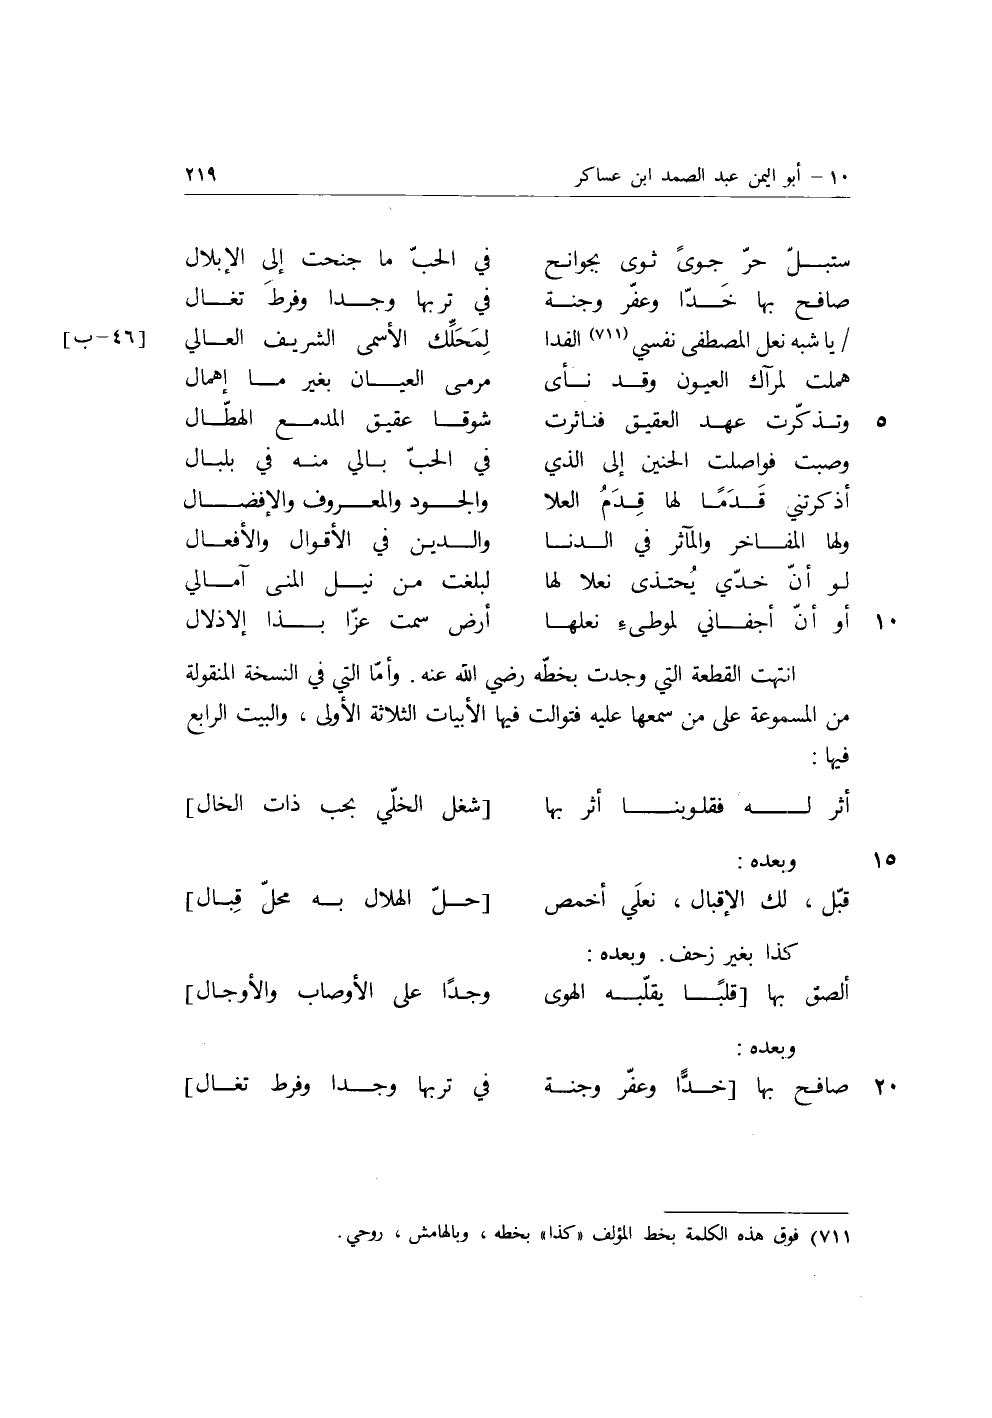 ١٠ – أبو اليمن عبد الصمد ابن عساكر ٢١٩
ستبلّ حرّ جوىً ثوى بجوانح في الحبّ ما جنحت إلى الإبلال
صافح بها خَدّا وعفّر وجنة في تربها وجدا وفرطَ تغال
/ يا شبه نعل المصطفى نفسي (٧١١) الفدا لِمَحَلِّك الأسمى الشريف العالي [٤٦–ب]
هملت لمرآك العيون وقد نأى مرمى العيان بغير ما إهمال
٥ وتذكّرت عهد العقيق فناثرت شوقا عقيق المدمع الهطّال
وصبت فواصلت الحنين إلى الذي في الحبّ بالي منه في بلبال
أذكرتني قَدَمًا لها قِدَمُ العلا والجود والمعروف والإفضال
ولها المفاخر والمآثر في الدنا والدين في الأقوال والأفعال
لو أنّ خدّي يُحتذى نعلا لها لبلغت من نيل المنى آمالي
١٠ أو أنّ أجفاني لموطىء نعلها أرض سمت عزّا بذا إلاذلال
انتهت القطعة التي وجدت بخطّه رضي الله عنه . وأمّا التي في النسخة المنقولة
من المسموعة على من سمعها عليه فتوالت فيها الأبيات الثلاثة الأولى ، والبيت الرابع
فيها :
أثر له فقلوبنا أثر بها [شغل الخلّي بحب ذات الخال]
١٥ وبعده :
قبّل ، لك الإقبال ، نعلَي أخمص [حلّ الهلال به محلّ قِبال]
كذا بغير زحف . وبعده :
ألصق بها [قلبًا يقلّبه الهوى وجدًا على الأوصاب والأوجال]
وبعده :
٢٠ صافح بها [خدًّا وعفّر وجنة في تربها وجدا وفرط تغال]
٧١١) فوق هذه الكلمة بخط المؤلف «كذا» بخطه ، وبالهامش ، روحي .